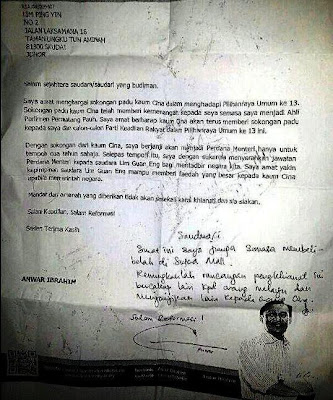 LIM PING YIN
NO 2
JALAN LAKSAMANA 16
TAMAN UNGKU TUN AMINAH
81300 SKUDAI
JOHOR
Salam sejahtera saudara/saudari yang budiman.
Saya amat menghargai sokongan padu kaum Cina dalam menghadapi Pilihanraya Umum ke 13.
Sokongan padu kaum Cina telah memberi kemenangan kepada saya semasa saya menjadi Ahli
Parlimen Permatang Pauh. Saya amat berharap kaum Cina akan terus memberi sokongan padu
kepada saya dan calon-calon Parti Keadilan Rakyat dalam Pilihanraya Umum ke 13 ini.
Dengan sokongan dari kaum Cina, saya berjanji akan menjadi Perdana Menteri hanya untuk
tempoh dua tahun sahaja. Selepas tempoh itu, saya dengan sukarela menyerahkan jawatan
Perdana Menteri kepada saudara Lim Guan Eng bagi mentadbir negara kita. Saya amat yakin
kepimpinan saudara Lim Guan Eng mampu memberi faedah yang besar kepada kaum Cina
apabila memerintah negara.
Mandat dan amanah yang diberikan tidak akan sekali-kali dikhianati dan sia-siakan.
Salam Keadilan, Salam Reformasi
Sekian Terima Kasih
Saudara/i
Surat ini saya jumpa semasa membeli-
belah di Sutera Mall.
Renungkanlah rancangan pengkhianat ini
bercakap lain kpd orang melayu dan
menjanjikan lain kepada orang Cina.
Salam Reformasi!
ANWAR IBRAHIM